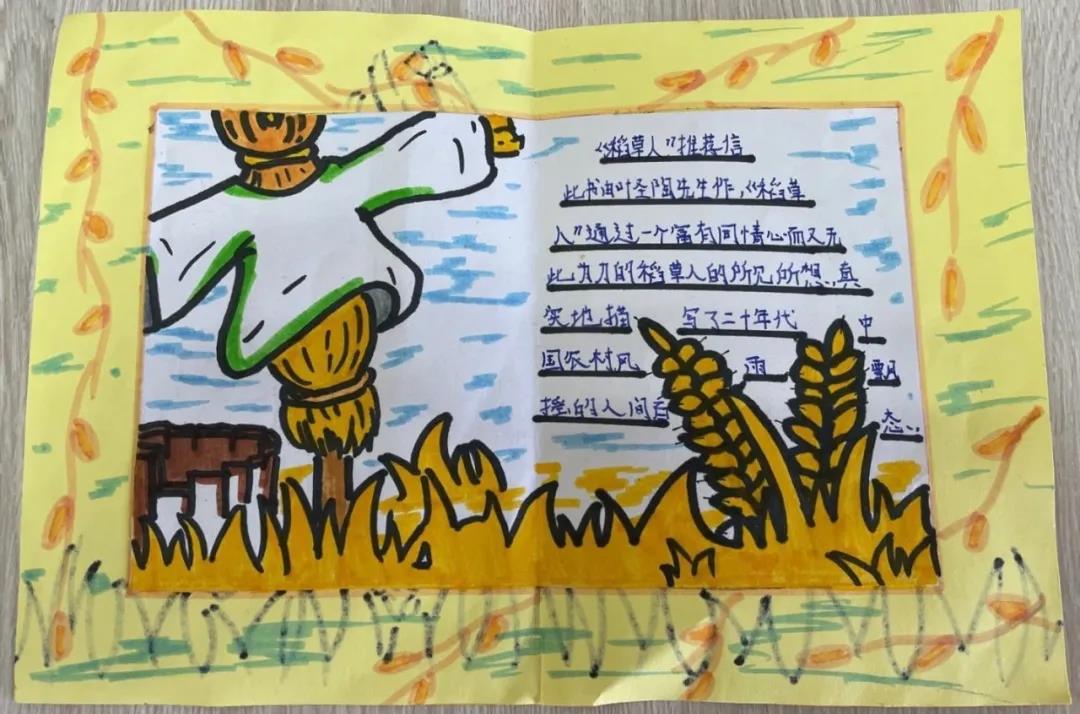 《稻草人”推荐信
此书由叶圣陶先生作,《稻草
人”通过一个富有同情心而又无
此为力的稻草人的所见所想,真
实地描写了二十年代中
国农村风雨飘
摇的人间百态..